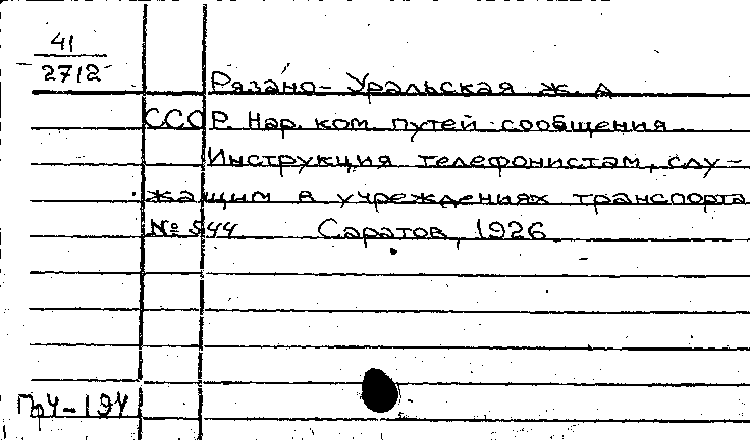 41
2712
Рязано-Уральская ж. д
СССР. Нар. ком. путей сообщения
Инструкция телефонистам, слу-
жащим в учреждениях транспорта
№ 544 Саратов, 1926